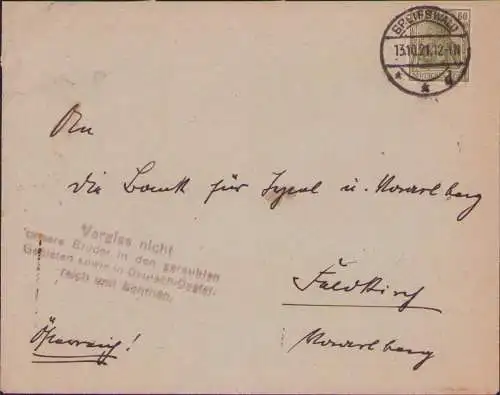 60
GREIFSWALD
13.10.21.12-1N
An
die Bank für Tyrol u. Vorarlberg
Vergiss nicht
unsere Brüder in den geraubten
Gebieten sowie in Deutsch-Oester-
reich und Böhmen.
Feldkirch
Vorarlberg
Österreich!